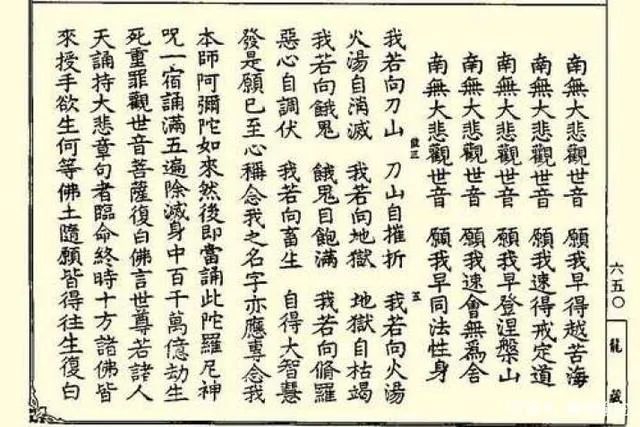 六五〇
龍藏
南無大悲觀世音 願我早得越苦海
南無大悲觀世音 願我速得戒定道
南無大悲觀世音 願我早登涅槃山
南無大悲觀世音 願我速會無為舍
南無大悲觀世音 願我早同法性身
我若向刀山 刀山自摧折 我若向火湯
五
火湯自消滅 我若向地獄 地獄自枯竭
我若向餓鬼 餓鬼自飽滿 我若向脩羅
惡心自調伏 我若向畜生 自得大智慧
發是願已至心稱念我之名字亦應專念我
本師阿彌陀如來然後即當誦此陀羅尼神
呪一宿誦滿五遍除滅身中百千萬億劫生
死重罪觀世音菩薩復白佛言世尊若諸人
天誦持大悲章句者臨命終時十方諸佛皆
來授手欲生何等佛土隨願皆得往生復白